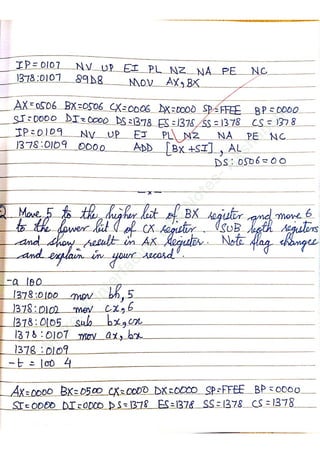 IP=0107 NV UP EI PL NZ NA PE NC
1378:0107 89D8 MOV AX,BX
AX=0506 BX=0506 CX=0006 DX=0000 SP=FFEE BP=0000
SI=0000 DI=0000 DS=1378 ES=1378 SS=1378 CS=1378
IP=0109 NV UP EI PL NZ NA PE NC
1378:0109 0000 ADD [BX+SI], AL
DS:0506=00
-x-
Move 5 to the higher bit of BX register and move 6
to the lower bit of CX register. SUB both registers
and show result in AX register. Note flag changes
and explain in your record.
-a 100
1378:0100 mov bh,5
1378:0102 mov cx,6
1378:0105 sub bx,cx
1378:0107 mov ax,bx
1378:0109
-t=100 4
AX=0000 BX=0500 CX=0000 DX=0000 SP=FFEE BP=0000
SI=0000 DI=0000 DS=1378 ES=1378 SS=1378 CS=1378